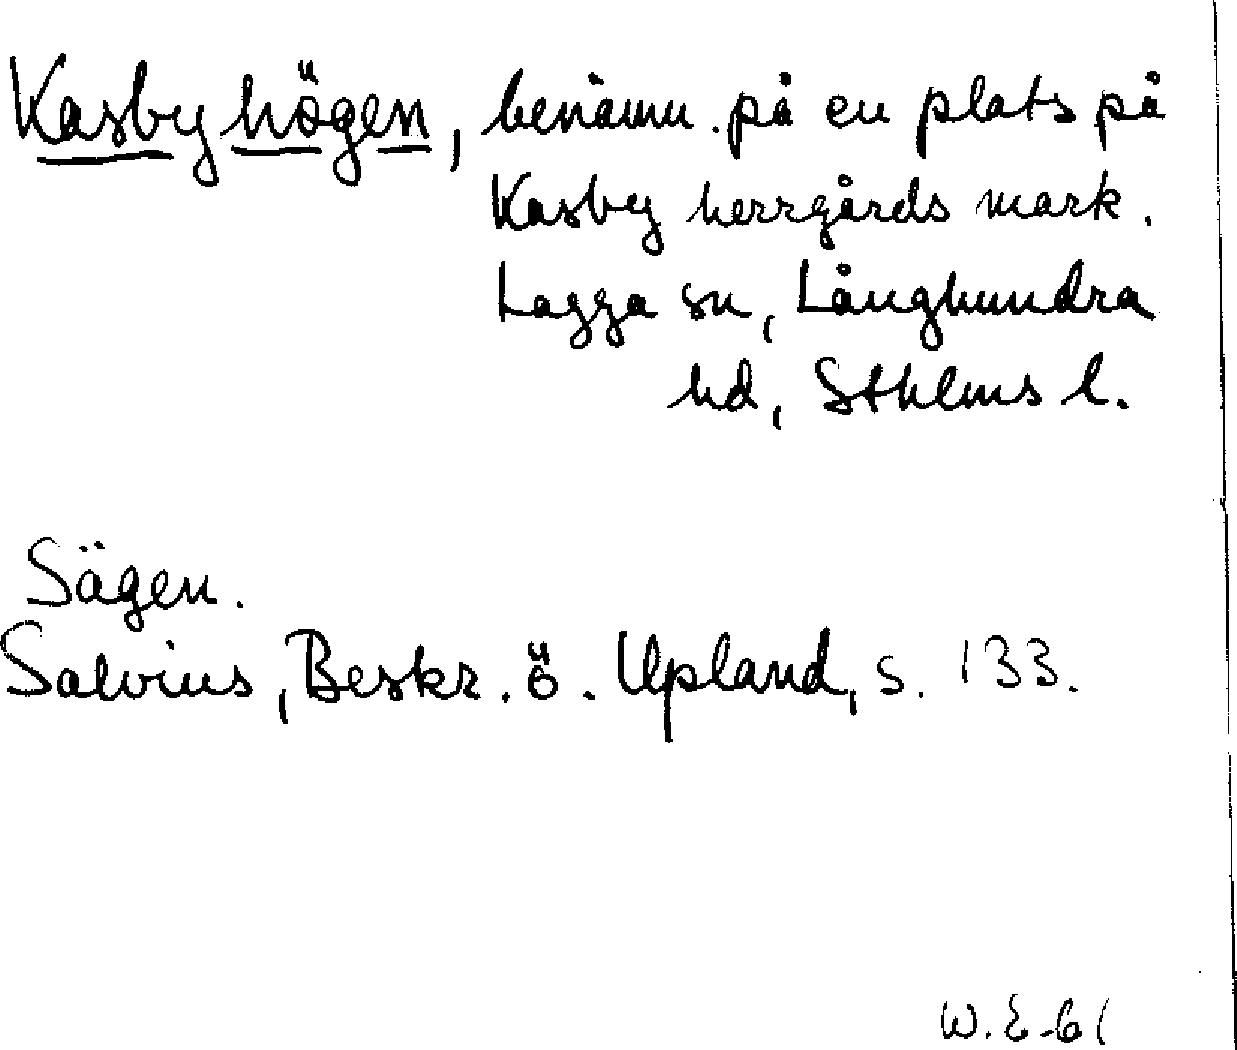 Kasbyhögen, benämn. på en plats på
Kasby herrgårds mark.
Lagga sn, Långhundra
hd, Sthlms l.
Sägen.
Salvius, Beskr. ö. Upland, s. 133.
W.E-61